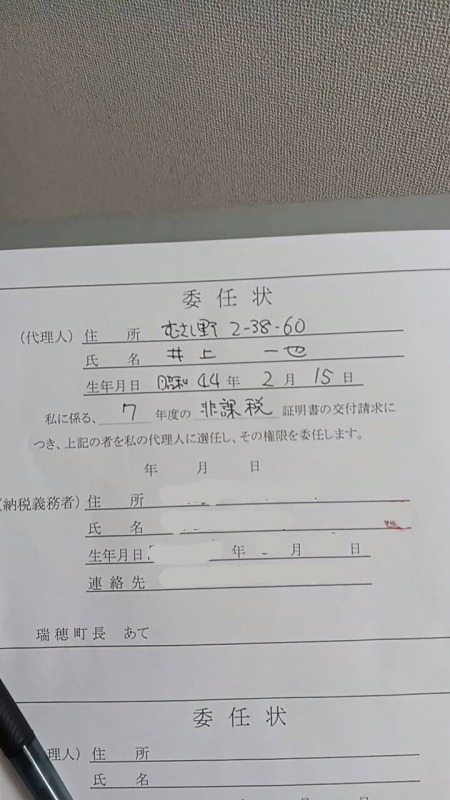 委任状
(代理人) 住 所 むさし野 2-38-60
氏 名 井上 一也
生年月日 昭和 44 年 2 月 15 日
私に係る、 7 年度の 非課税 証明書の交付請求に
つき、上記の者を私の代理人に選任し、その権限を委任します。
年 月 日
(納税義務者) 住 所
氏 名
生年月日 年 月 日
連絡先
瑞穂町長 あて
委任状
理人) 住 所
氏 名
年 月 日